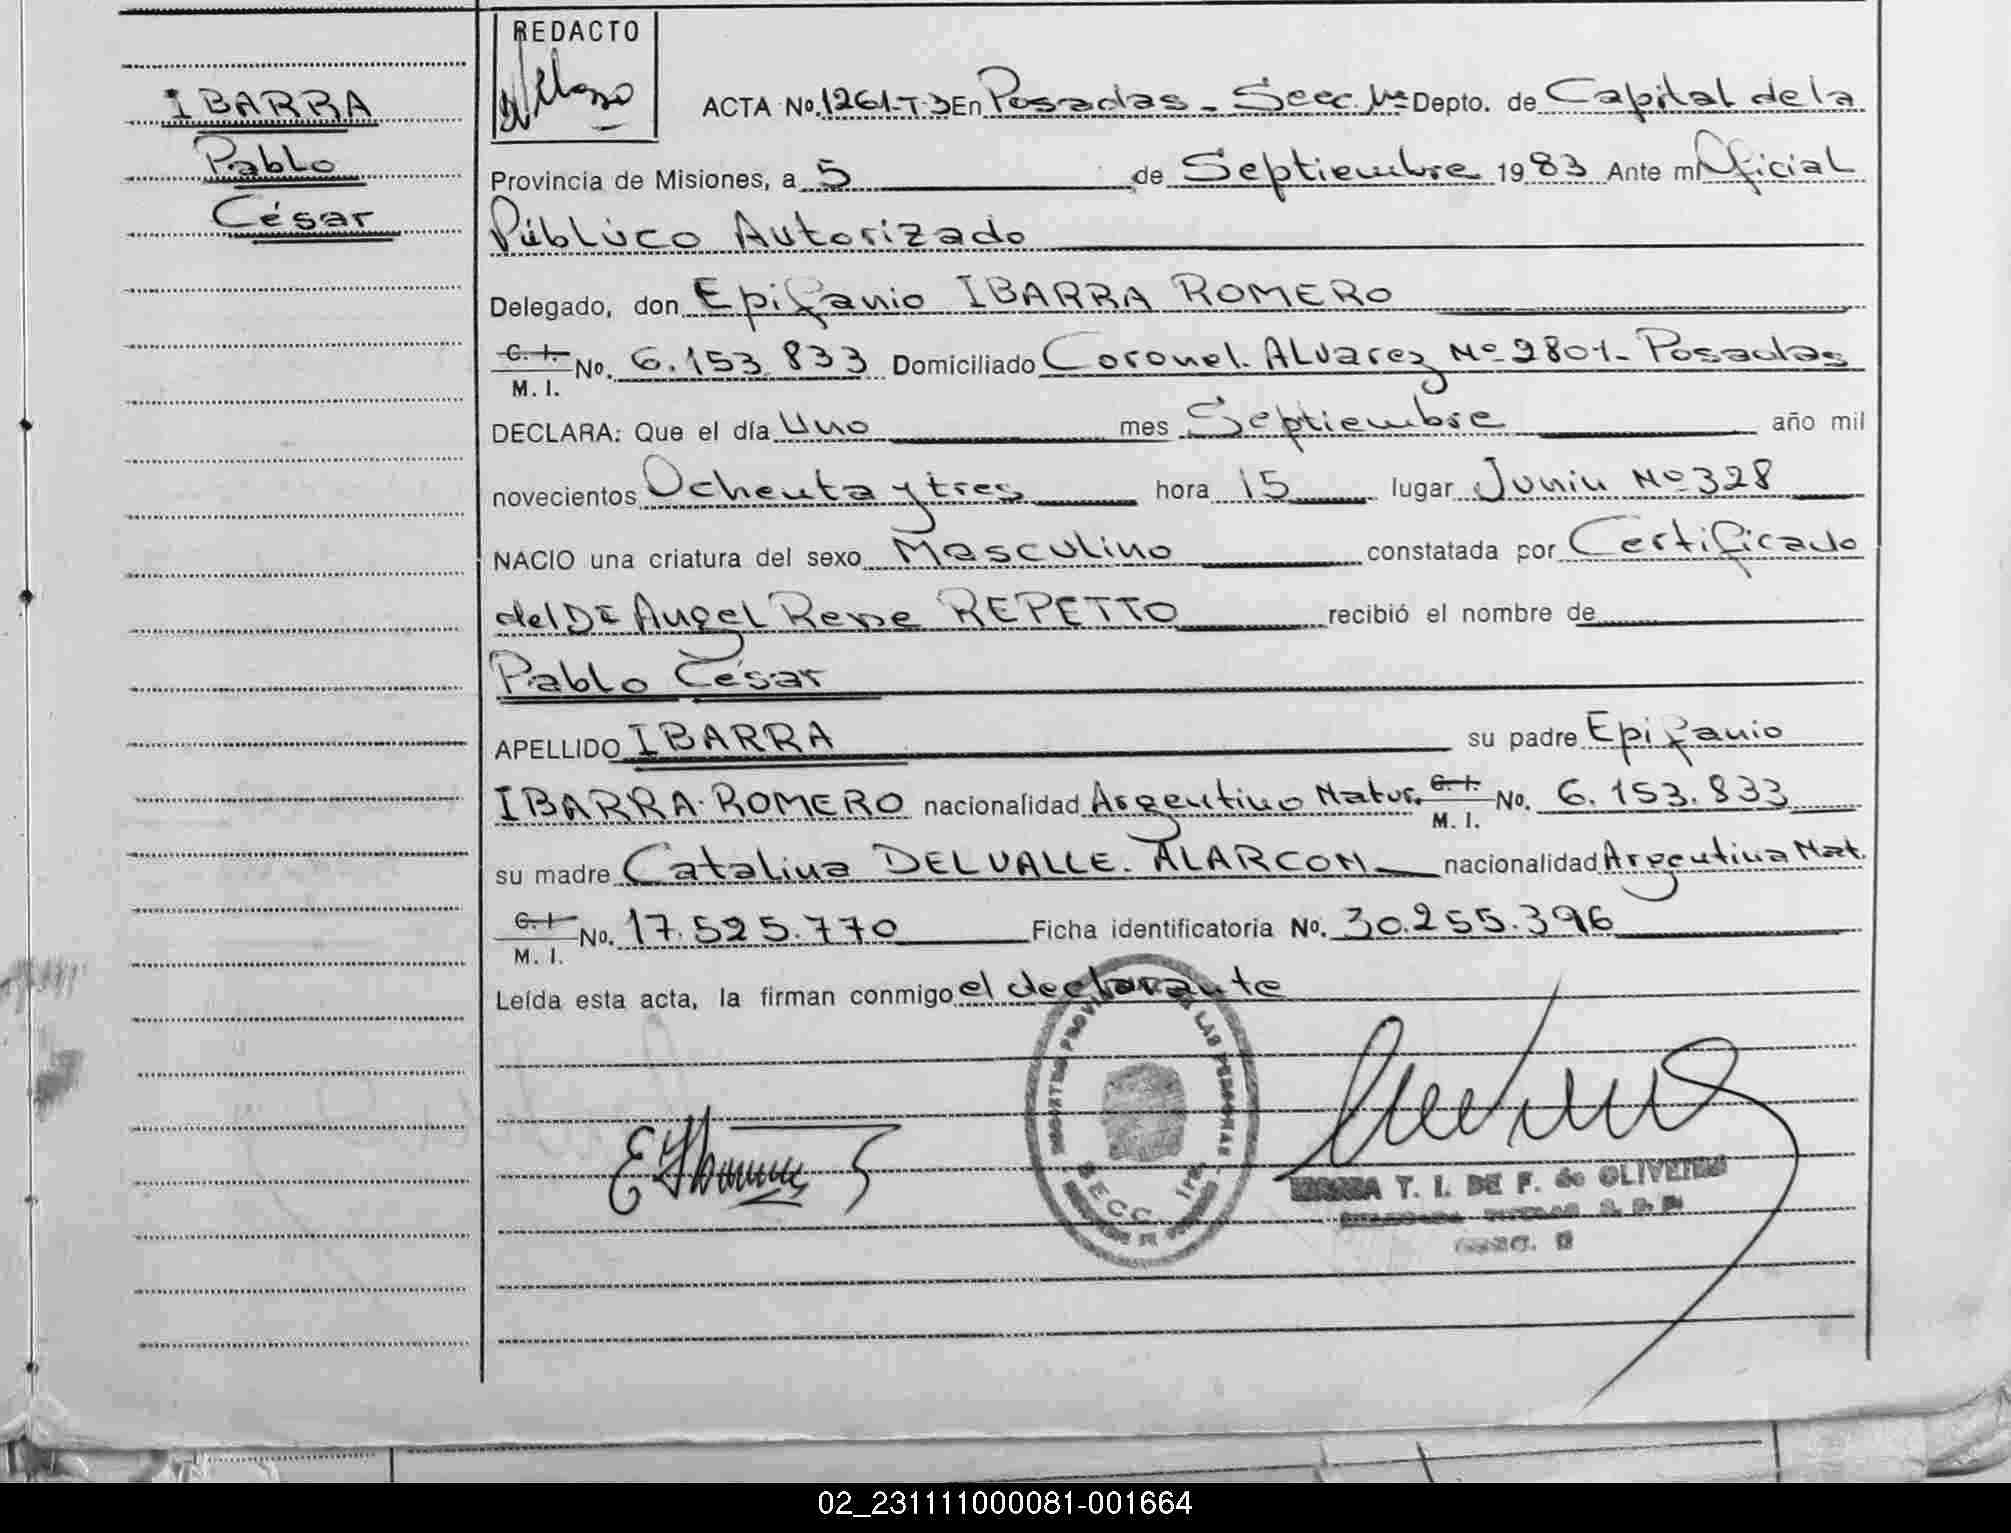 IBARRA
Pablo
César
REDACTO
ACTA No. 1261-T-3 En Posadas - Secc. 1ra Depto. de Capital de la
Provincia de Misiones, a 5 de Septiembre 1983 Ante mí Oficial
Público Autorizado
Delegado, don Epifanio IBARRA ROMERO
C. I. M. I. No. 6.153.833 Domiciliado Coronel. Alvarez Nº 2801- Posadas
DECLARA: Que el día Uno mes Septiembre año mil
novecientos Ochenta y tres hora 15 lugar Junin Nº 328
NACIO una criatura del sexo Masculino constatada por Certificado
del Dr Angel Rene REPETTO recibió el nombre de
Pablo César
APELLIDO IBARRA su padre Epifanio
IBARRA ROMERO nacionalidad Argentino Natur. C. I. M. I. No. 6.153.833
su madre Catalina DEL VALLE. ALARCON nacionalidad Argentina Nat.
C. I. M. I. No. 17.525.770 Ficha identificatoria No. 30.255.396
Leída esta acta, la firman conmigo el declarante
REGISTRO PROVINCIAL DE LAS PERSONAS
SECC. 1ra.
T. I. DE F. de OLIVEIRA
02_231111000081-001664